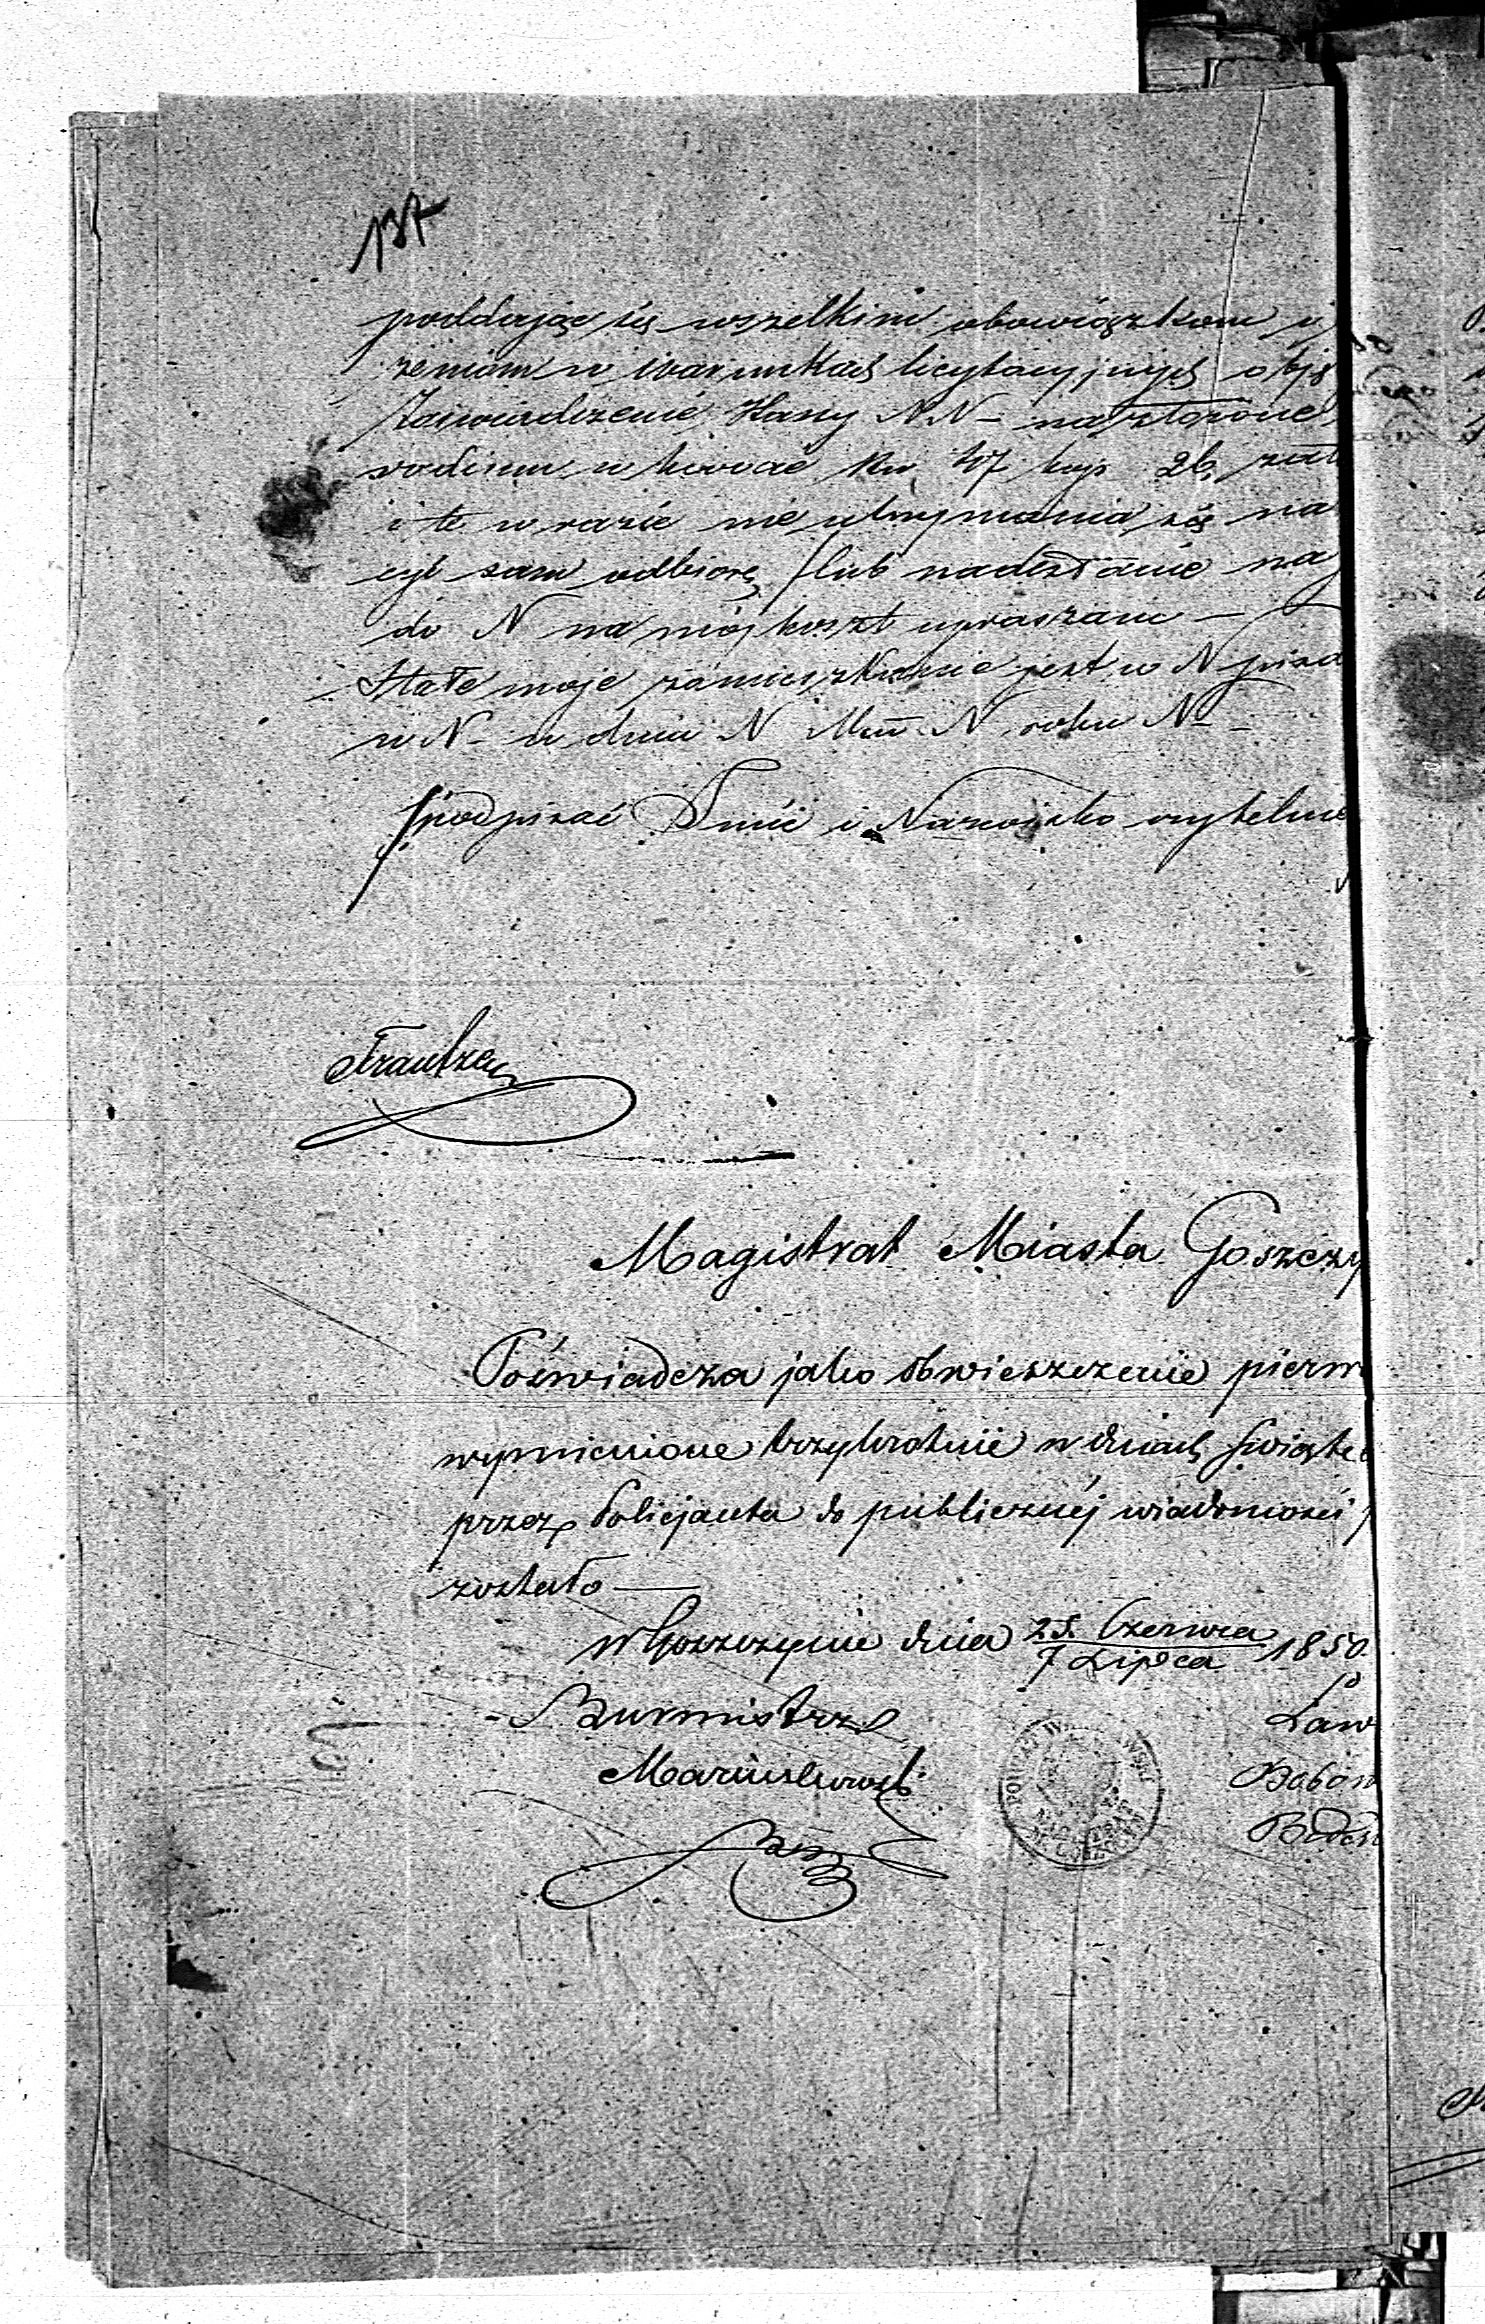 137
poddając się wszelkim obowiązkom i
żeniom w warunkach licytacyjnych obję
Zaświadczenie Kassy NN – na złożone
vadium w kwocie Rs. 47 kop. 26 zał
i te w razie nie utrzymania się na
cyi sam odbiorę /lub nadesłanie na
do N na mój koszt upraszam –
Stałe moje zamieszkanie jest w N pisa
w N – w dniu N Mca N roku N –
/podpisać Imie i Nazwisko czytelnie
Magistrat Miasta Goszczy
Poświadcza jako obwieszczenie pierw
wymienione trzykrotnie w dniach świąte
przez Policjanta do publicznéj wiadomości
zostało —
w Goszczynie dnia 25. Czerwca / 7 Lipca 1850.
Burmistrz
Ław